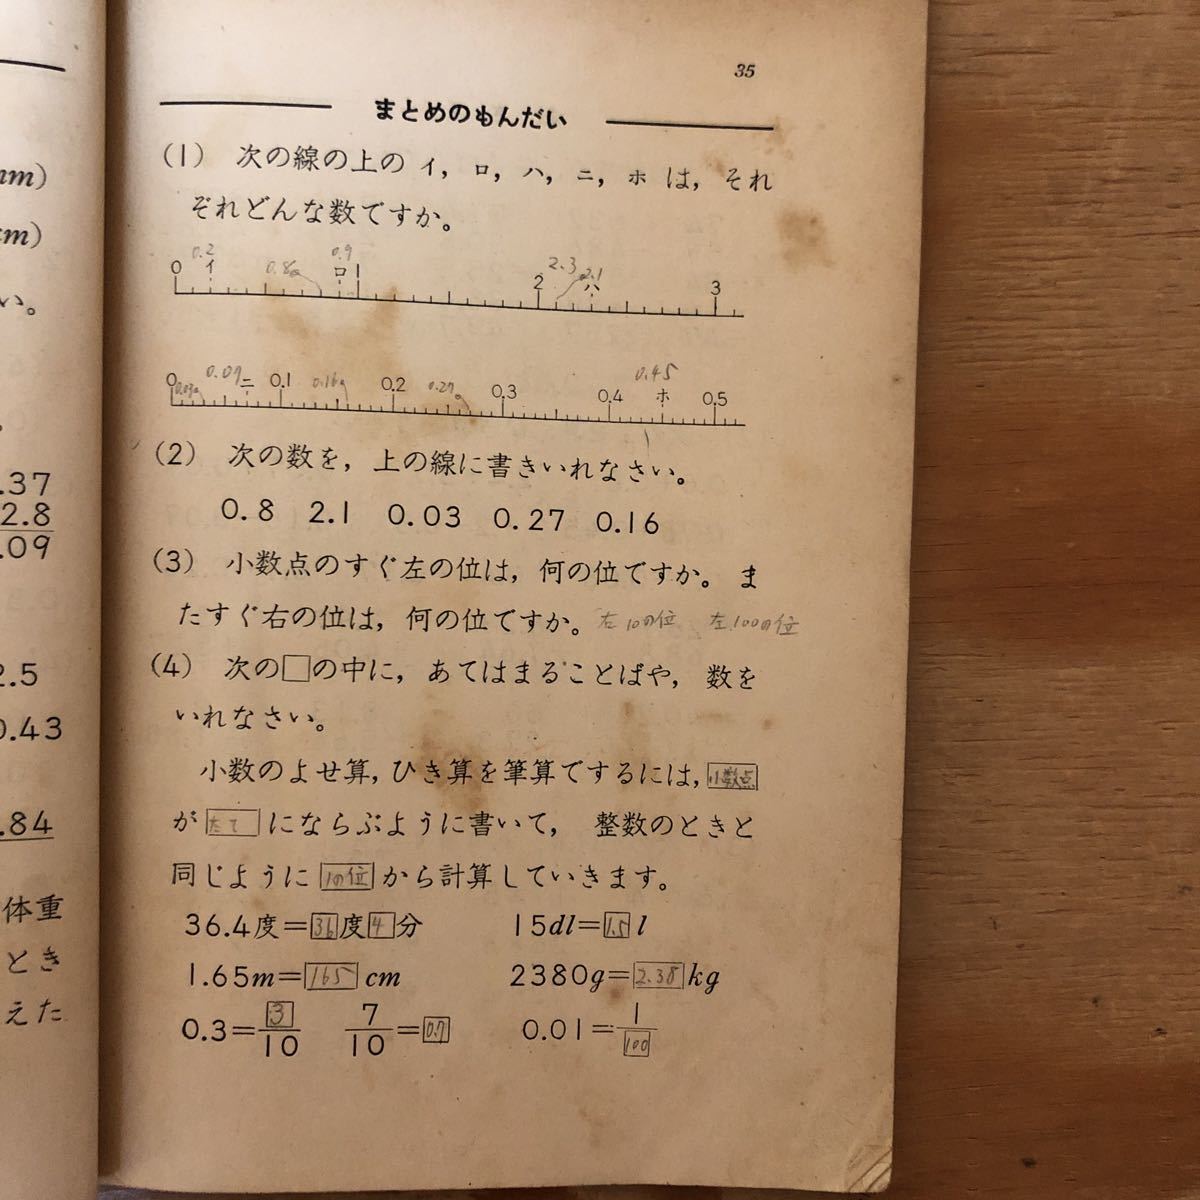 35
まとめのもんだい
(1) 次の線の上の イ, ロ, ハ, ニ, ホ は, それ
ぞれどんな数ですか。
0.2 0.8 0.9 2.3 2.1
0 イ ロ 1 2 ハ 3
0.03 0.09 0.16 0.27 0.45
0 ニ 0.1 0.2 0.3 0.4 ホ 0.5
(2) 次の数を, 上の線に書きいれなさい。
0.8 2.1 0.03 0.27 0.16
(3) 小数点のすぐ左の位は, 何の位ですか。 ま
たすぐ右の位は, 何の位ですか。 右10の位 左100の位
(4) 次の□の中に, あてはまることばや, 数を
いれなさい。
小数のよせ算, ひき算を筆算でするには, 小数点
が たて にならぶように書いて, 整数のときと
同じように 1の位 から計算していきます。
36.4度=36度4分 15dl=1.5l
1.65m=165cm 2380g=2.38kg
0.3=3/10 7/10=0.7 0.01=1/100
mm)
cm)
い。
.37
2.8
.09
2.5
0.43
.84
体重
とき
えた